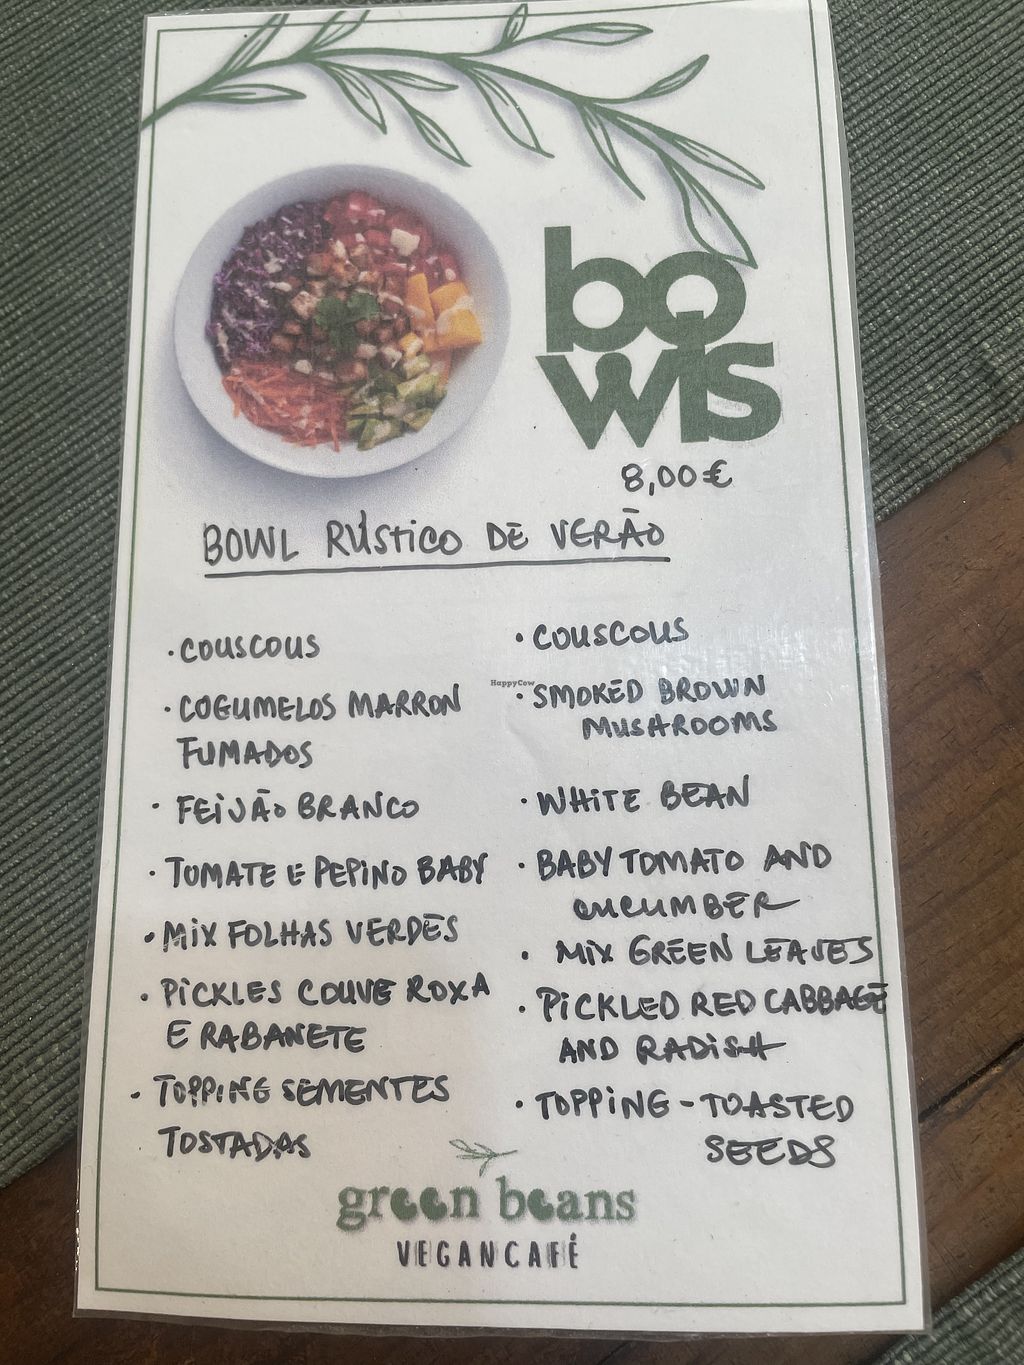 bowls
8,00€
BOWL RÚSTICO DE VERÃO
·COUSCOUS
·COGUMELOS MARRON
FUMADOS
·FEIJÃO BRANCO
·TOMATE E PEPINO BABY
·MIX FOLHAS VERDES
·PICKLES COUVE ROXA
E RABANETE
·TOPPING SEMENTES
TOSTADAS
·COUSCOUS
HappyCow
·SMOKED BROWN
MUSHROOMS
·WHITE BEAN
·BABY TOMATO AND
CUCUMBER
·MIX GREEN LEAVES
·PICKLED RED CABBAGE
AND RADISH
·TOPPING - TOASTED
SEEDS
green beans
VEGANCAFÉ